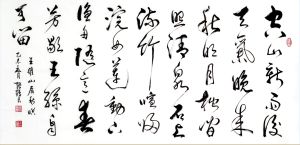 空山新雨後
天氣晚來
秋明月松間
照清泉石上
流竹喧歸
浣女蓮動下
漁舟隨意春
芳歇王孫自
可留
王維山居秋暝